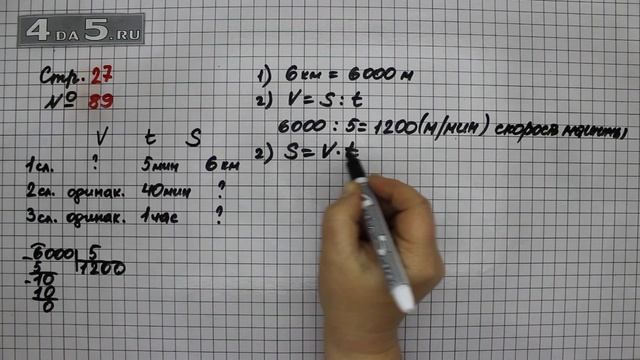 4 DA 5.RU
Стр. 27
№ 89
V t S
1сл. ? 5мин 6 км
2сл. одинак. 40мин ?
3сл. одинак. 1час ?
6000 5
5 1200
-10
10
0
1) 6 км = 6000 м
2) V = S : t
6000 : 5 = 1200 (м/мин) скорость машины
2) S = V · t